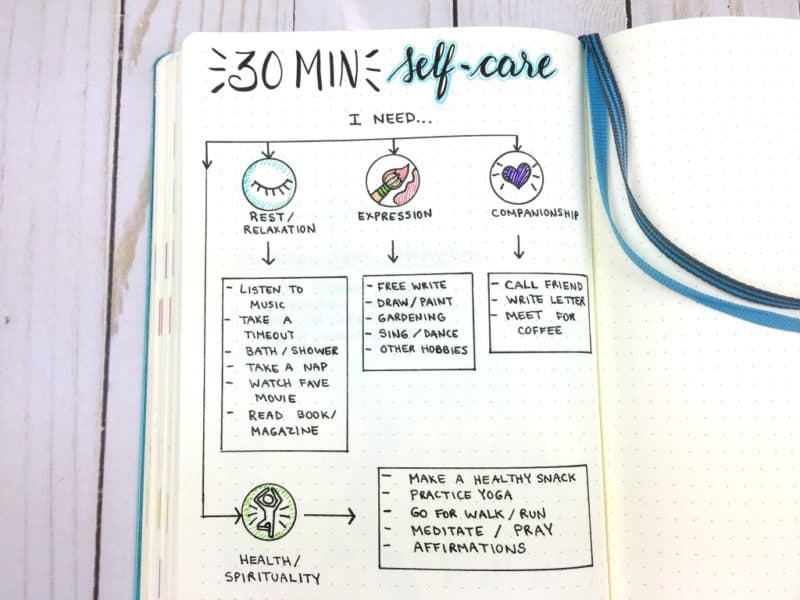 30 MIN self-care
I NEED...
REST/
RELAXATION
EXPRESSION
COMPANIONSHIP
- LISTEN TO
MUSIC
- TAKE A
TIMEOUT
- BATH / SHOWER
- TAKE A NAP
- WATCH FAVE
MOVIE
- READ BOOK/
MAGAZINE
- FREE WRITE
- DRAW/PAINT
- GARDENING
- SING/DANCE
- OTHER HOBBIES
- CALL FRIEND
- WRITE LETTER
- MEET FOR
COFFEE
HEALTH/
SPIRITUALITY
- MAKE A HEALTHY SNACK
- PRACTICE YOGA
- GO FOR WALK / RUN
- MEDITATE / PRAY
- AFFIRMATIONS